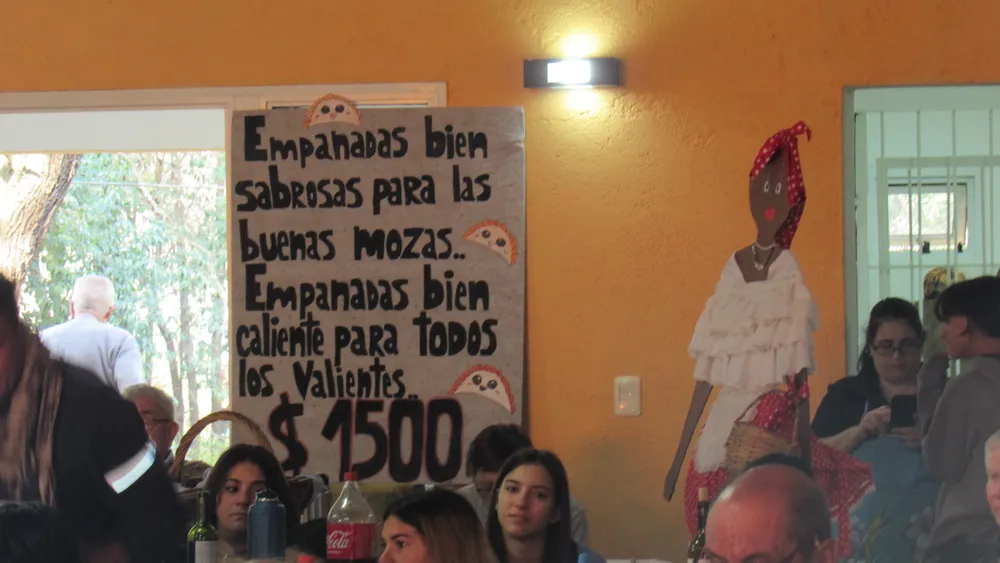 Empanadas bien
sabrosas para las
buenas mozas..
Empanadas bien
caliente para TODOS
los Valientes..
$1500
Coca-Cola